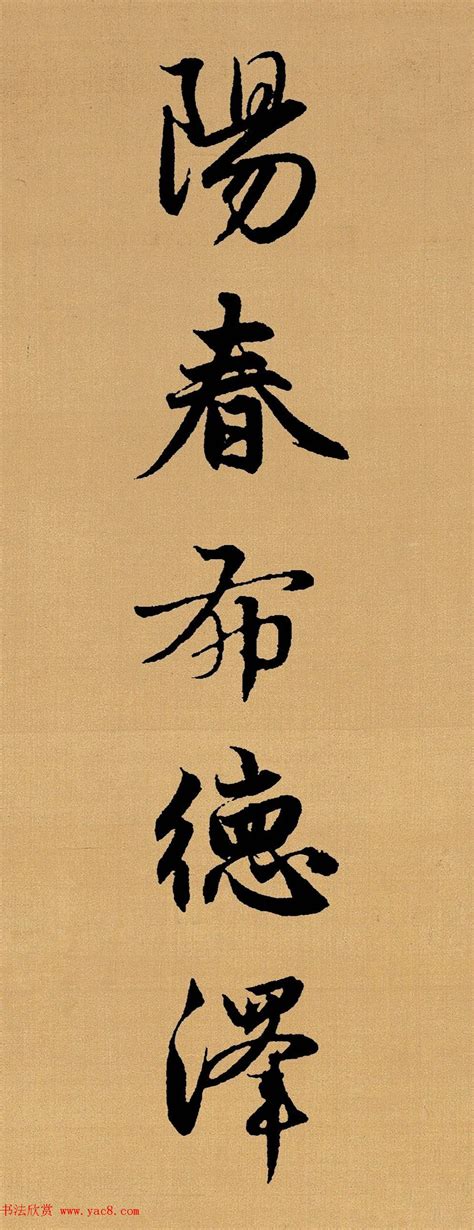 陽春布德澤
书法欣赏 www.yac8.com